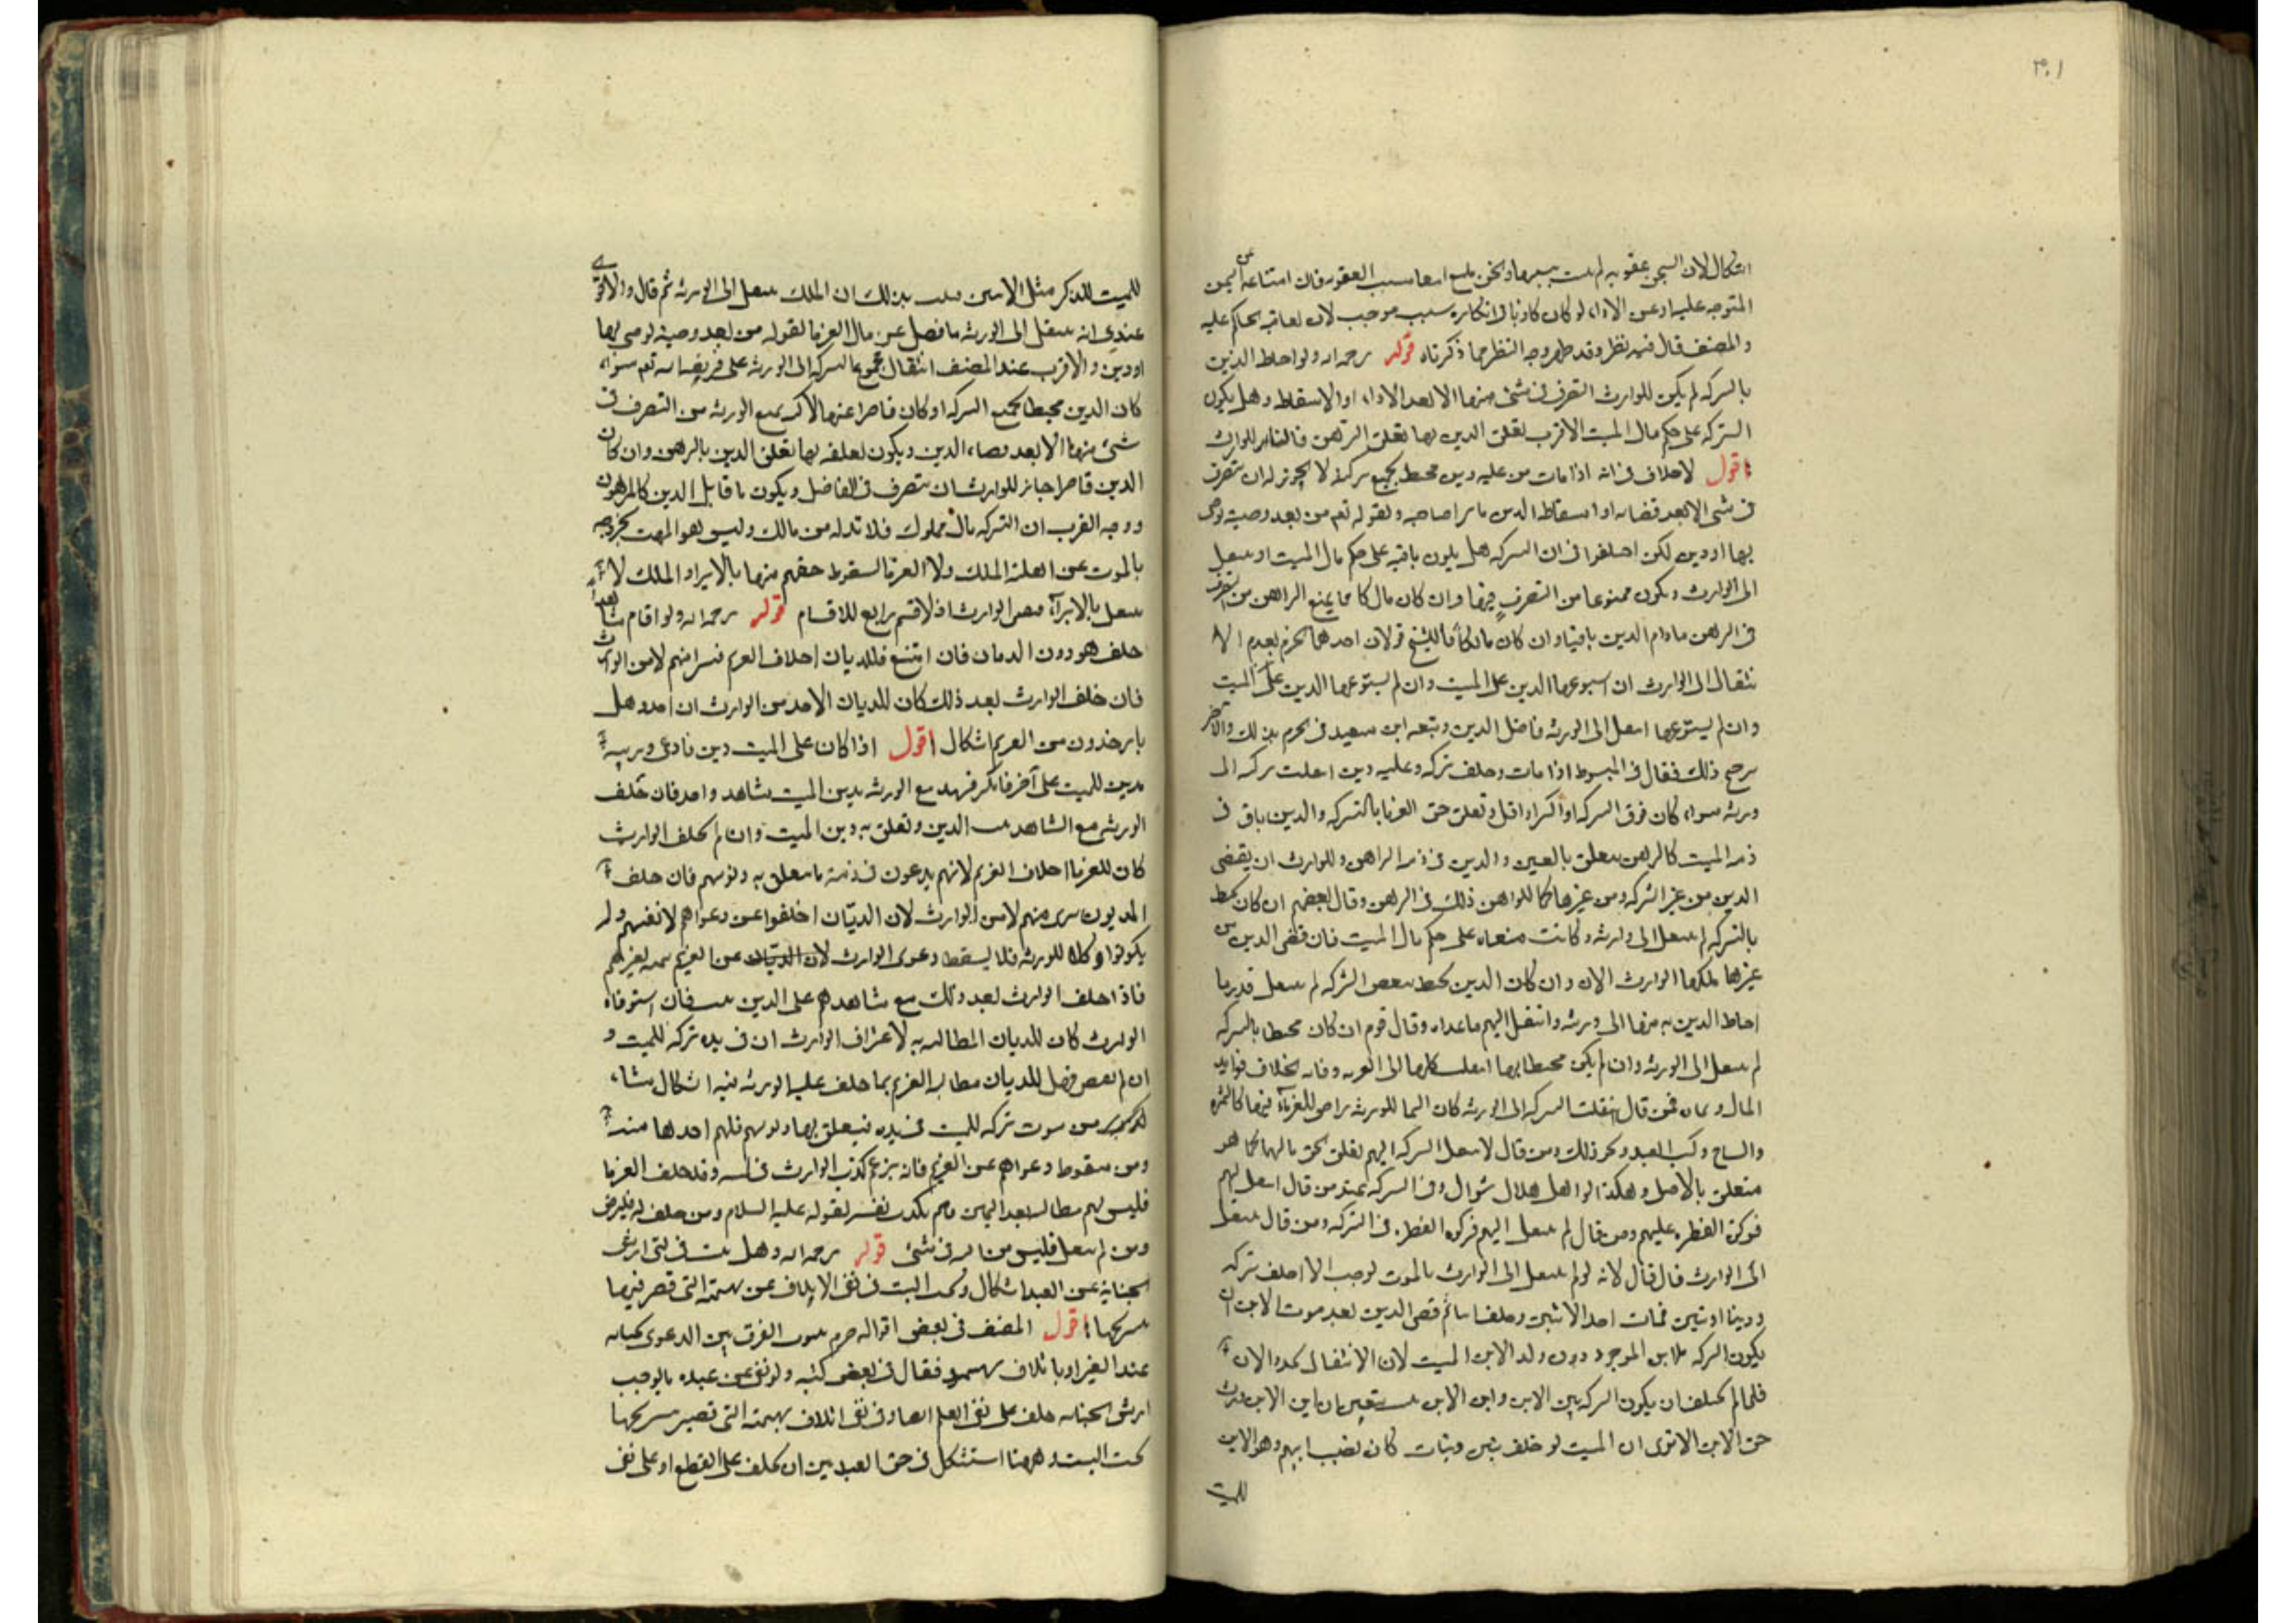 اشكال لان السجن عقوبة لم يثبت سببها ونحن نمنع سبب العقوبة فان امتناعه عن اليمين
المتوجه عليه او عن الاداء لو كان كاذبا في انكاره سبب موجب لان يعاقبه الحاكم عليه
والمصنف قال فيه نظر وقد ظهر وجه النظر مما ذكرناه قوله رحمه الله ولو احاط الدين
بالتركه لم يكن للوارث التصرف في شئ منها الا بعد الاداء او الاسقاط وهل يكون
التركه على حكم مال الميت الاقرب تعلق الدين بها تعلق الرهن فالنماء للوارث
اقول لا خلاف في انه اذا مات من عليه دين محيط بجميع تركته لا يجوز له ان يتصرف
في شئ الا بعد قضائه او اسقاط الدين صاحبه ولقوله تعم من بعد وصية يوصى
بها او دين لكن اختلفوا في ان التركه هل يكون باقيه على حكم مال الميت او ينتقل
الى الوارث ويكون ممنوعا من التصرف فيها وان كان مالكا كما يمنع الراهن من التصرف
في الرهن مادام الدين باقيا وان كان مالكا فللشيخ قولان احدهما الجزم بعدم الا
نتقال الى الوارث ان استوعبها الدين على الميت وان لم يستوعبها الدين على الميت
وان لم يستوعبها انتقل الى الورثه فاضل الدين وتبعه ابن سعيد في الجزم بذلك والاخر
رجح ذلك فقال في المبسوط اذا مات وخلف تركه وعليه دين انتقلت تركته الى
ورثه سواء كان فوق التركه او اكثر او اقل وتعلق حق الغرما بالتركه والدين باق في
ذمه الميت كالرهن يتعلق بالعين والدين في ذمه الراهن وللوارث ان يقضى
الدين من غير التركه ومن غيرها كما للراهن ذلك في الرهن وقال بعضهم ان كان يحيط
بالتركه لم ينتقل الى وارثه وكانت على حكم مال الميت فان قضى الدين من
غيرها ملكها الوارث الان وان كان الدين يحيط ببعض التركه لم ينتقل قدر ما
احاط الدين به منها الى ورثه وانتقل اليهم ما عداه وقال قوم ان كان محيطا بالتركه
لم ينتقل الى الورثه وان لم يكن محيطا بها انتقلت كلها الى الورثه وفائده الخلاف فوايد
المال ونمائه فمن قال انتقلت التركه الى الورثه كان النما للورثه للغرماء فيها كالثمره
والنتاج وكسب العبد ونحو ذلك ومن قال لا تنتقل التركه اليهم تعلق الحق بالنماء كما هو
متعلق بالاصل وهكذا لو اهل هلال شوال وفي التركه عبيد من قال انتقل اليهم
فزكوة الفطره عليهم ومن قال لم ينتقل اليهم فزكوة الفطره في التركه ومن قال ينتقل
الى الوارث قال لانه لو لم ينتقل الى الوارث بالموت لوجب الا خلف تركه
ودينا وابنين فمات احد الاثنين وخلف ابنا ثم قضى الدين بعد موت الابن ان
يكون التركه للابن الموجود دون ولد الابن الميت لان الانتقال الان
فلما لم يختلف ان يكون التركه بين الابن وابن الابن الابن ورث
حق الابن الا ترى ان الميت لو خلف بنين وبنات كان نصيب ابيهم وهو الابن
للميت
للميت للذكر مثل الانثيين بذلك ان الملك ينتقل الى الورثه ثم قال والاقوى
عندي انه ينتقل الى الورثه ما فضل عن مال الغرما لقوله من بعد وصية يوصي بها
او دين والاقرب عند المصنف انتقال مجموع التركه الى الورثه على فرائض الله تعم سواء
كان الدين محيطا بجميع التركه او كان قاصرا عنها لاكن يمنع الورثه من التصرف في
شئ منها الا بعد قضاء الدين ويكون تعلقه بها تعلق الدين بالرهن وان كان
الدين قاصرا جاز للوارث ان يتصرف في الفاضل ويكون ما قابل الدين كالمرهون
ووجه القرب ان التركه مال مملوك فلا بد له من مالك وليس هو الميت لخروجه
بالموت عن اهلية الملك ولا الغرما لسقوط حقهم منها بالابراء والملك لا
ينتقل بالابراء فتعين الوارث اذ لا قسم رابع للاقسام قوله رحمه الله ولو اقام شاهدا
حلف هو دون الديان فان امتنع فللديان احلاف الغريم فيبرأ منهم لا من الوارث
فان حلف الوارث بعد ذلك كان للديان الاخذ من الوارث ان اخذ وهل
ياخذون من الغريم اشكال اقول اذا كان على الميت دين فادعى
بدين للميت على آخر فانكر فشهد مع الورثه بدين الميت شاهد واحد فان حلف
الورثه مع الشاهد ثبت الدين وتعلق به دين الميت وان لم يحلف الوارث
كان للغرما احلاف الغريم لانهم يدعون في ذمته ما يتعلق به ديونهم فان حلف
المديون برئ منهم لا من الوارث لان الديّان احلفوا عن دعواهم لانفسهم ولم
يكونوا وكلا للورثه فلا يسقط دعوى الوارث عن الغريم
فاذا حلف الوارث بعد ذلك مع شاهدهم على الدين ثبت فان استوفاه
الوارث كان للديان المطالبه به لاعتراف الوارث ان في يده تركه للميت و
ان لم يقبض فهل للديان مطالبه الغريم بما حلف عليه الورثه فيه اشكال ينشاء
من ثبوت تركه للميت في يده فيتعلق بها ديونهم فلهم اخذها منه
ومن سقوط دعواهم عن الغريم فانه يزعم كذب الوارث في يمينه وقد حلف الغرما
فليس لهم مطالبته بعد اليمين لقوله عليه السلام ومن حلف له فليرض
ومن لم يفعل فليس من الله في شئ قوله رحمه الله وهل يثبت في نفى ارش
الجناية عن العبد اشكال ويجب البت في نفى الاتلاف عن بهيمته التي قصر فيها
بتسريحها اقول المصنف في بعض اقواله جزم بثبوت الفرق بين الدعوى بجنايه
عبد الغير او باتلاف بهيمته فقال في بعض كتبه ولو نفى عن عبده ما يوجب
ارش الجنايه حلف على نفى العلم وفي نفى اتلاف بهيمته التي قصر بتسريحها
يجب البت وههنا استشكل في حق العبد بين ان يحلف على القطع او على نفى